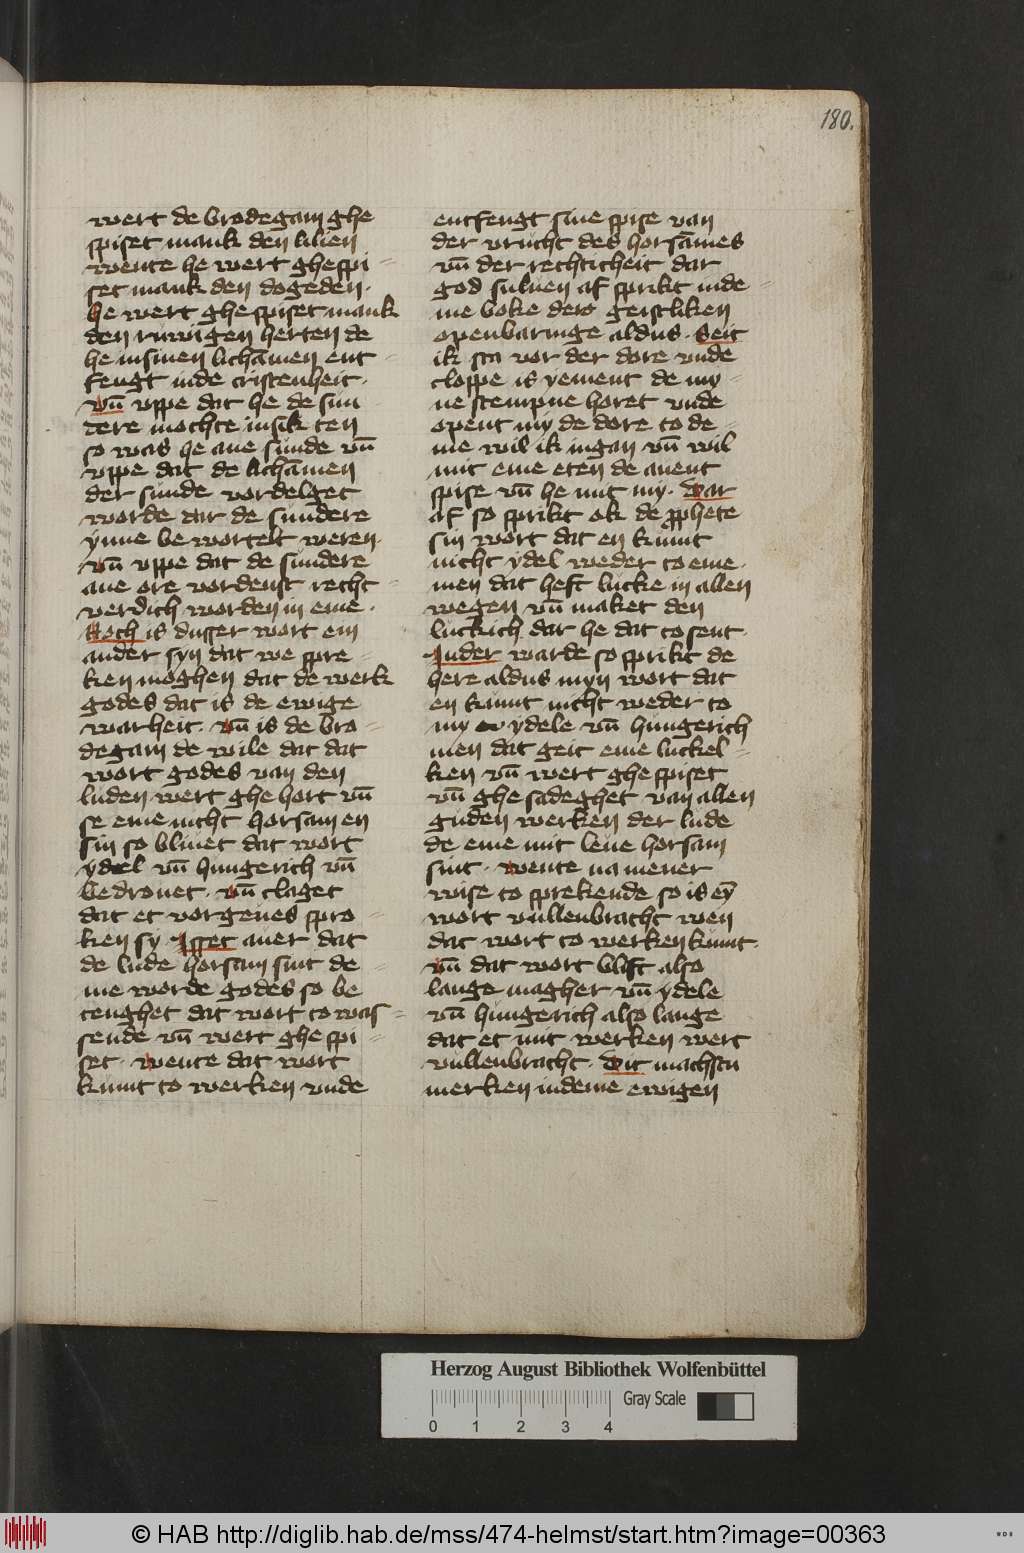 180.
wert de brodegam ghe
spiset mank den lilien
wente he wert ghespi
set mank den dogeden.
he wert ghe spiset mank
den ruwigen herten de
he in sinen lichāmen ent
fengt in de cristenheit.
vn̄ vppe dat he de sun
dere mochte in sik ten
so was he ane sunde vn̄
vppe dat de lichāmen
der sunde vordelget
worde dar de sundere
ynne be wortelt weren.
vn̄ vppe dat de sundere
ane ore vordenst recht
verdich worden in eme.
Noch is dusser wort ein
ander syn dat we spre
ken moghen dat de werk
godes dat is de ewige
warheit. vn̄ is de bro
degam de wile dat dat
wort godes van den
luden wert ghe hort vn̄
se eme nicht horsam en
sin so bliuet dat wort
ydel vn̄ hungerich vn̄
bedrouet. vn̄ claget
dat et vorgeues spro
ken sy. Isset auer dat
de lude horsam sint de
me worde godes so be
tenghet dat wort to was
sende vn̄ wert ghe spi
set. wente dat wort
kumt to werken vnde
entfengt sine spise van
der vrucht des horsāmes
vn̄ der rechticheit dar
god suluen af sprikt in de
me boke der geistliken
openbaringe aldus. Seit
ik sta vor der dore vnde
cloppe is yement de my
ne stempne horet vnde
opent my de dore to de
me wil ik ingan vn̄ wil
mit eme eten de auent
spise vn̄ he mit my. Dar
af so sprikt ok de ꝓphete
sin wort dat en kumt
nicht ydel weder to eme.
men dat heft lucke in allen
wegen vn̄ maket den
luckich dar he dat to sent.
In der warde so sprikt de
here aldus myn wort dat
en kumt nicht weder to
my ydele vn̄ hungerich
men dat geit eme luckel
ken vn̄ wert ghe spiset
vn̄ ghe sadeghet van allen
guden werken der lude
de eme mit leue horsam
sint. wente na mener
wise to sprekende so is ey̅
wort vullenbracht wen
dat wort to werken kumt.
vn̄ dat wort blift also
lange magher vn̄ ydele
vn̄ hungerich also lange
dat et mit werken wert
vullenbracht. Dit machstu
merken in deme ewigen
Herzog August Bibliothek Wolfenbüttel
Gray Scale
0 1 2 3 4
© HAB http://diglib.hab.de/mss/474-helmst/start.htm?image=00363